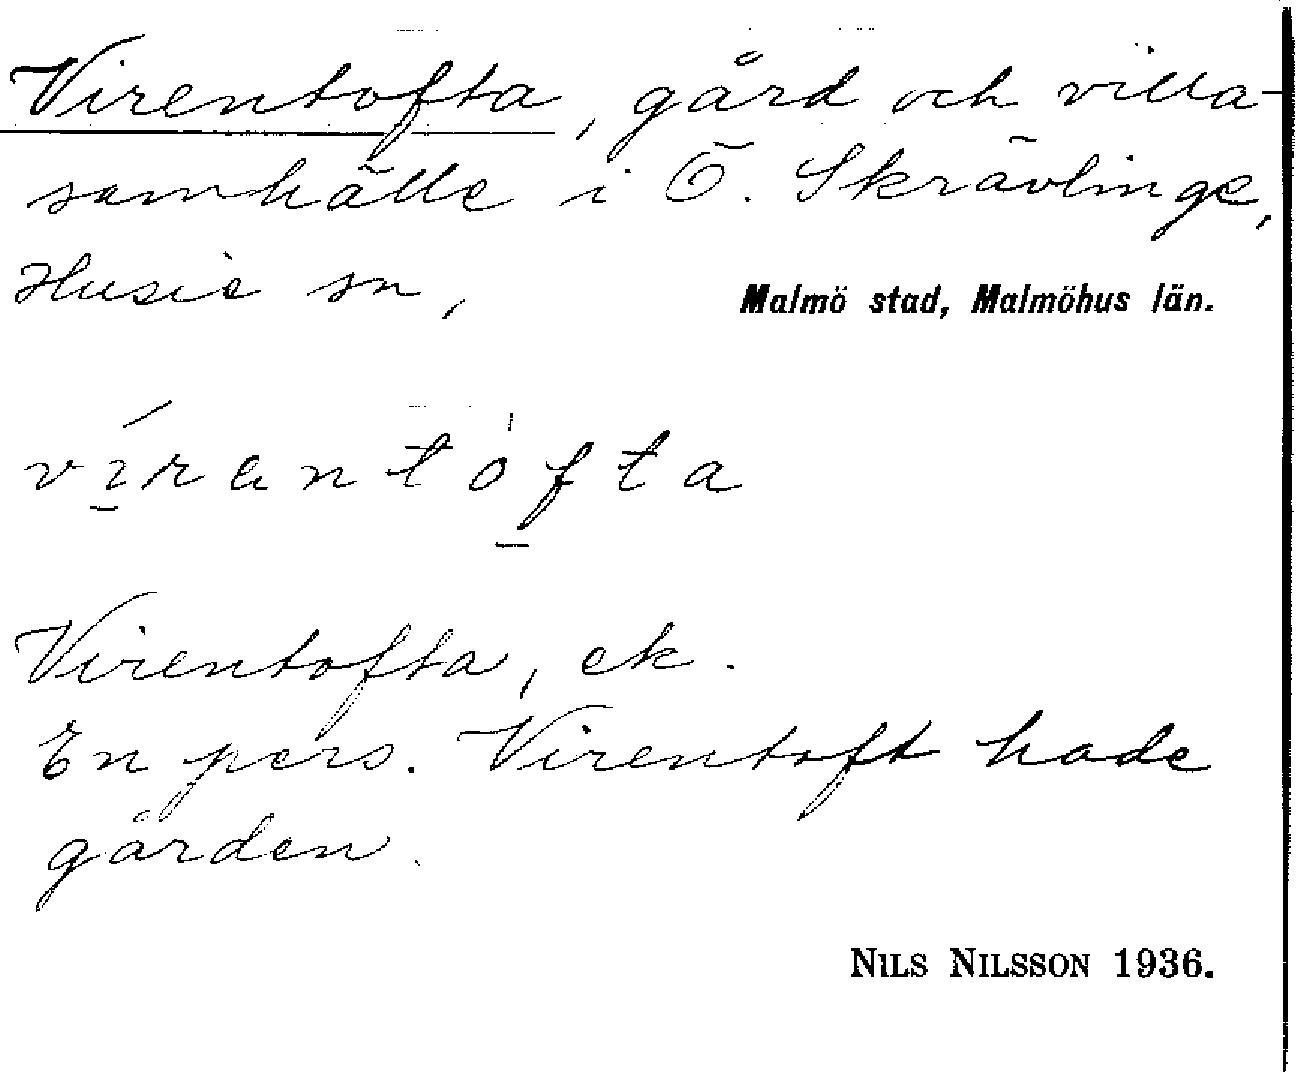 Virentofta, gård och villa-
samhälle i Ö. Skrävlinge,
Husie sn,
Malmö stad, Malmöhus län.
vírantófta
Virentofta, ek.
En pers. Virentoft hade
gården.
NILS NILSSON 1936.